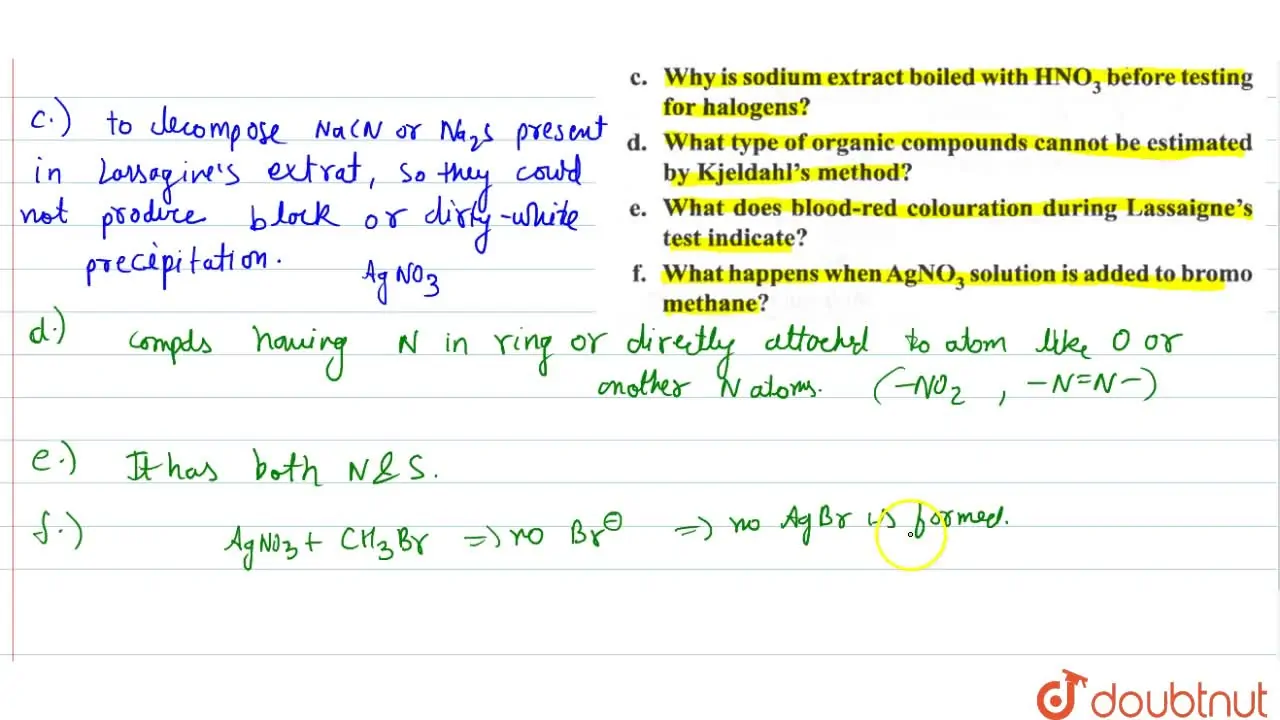 c. Why is sodium extract boiled with HNO₃ before testing
for halogens?
d. What type of organic compounds cannot be estimated
by Kjeldahl's method?
e. What does blood-red colouration during Lassaigne's
test indicate?
f. What happens when AgNO₃ solution is added to bromo
methane?
c.) to decompose NaCN or Na₂S present
in Lassagine's extrat, so they could
not produce block or dirty-white
precipitation.
AgNO₃
d.) compds having N in ring or directly attached to atom like O or
another N atoms. (-NO₂, -N=N-)
e.) It has both N & S.
f.) AgNO₃ + CH₃Br ⇒ no Br⊖ ⇒ no AgBr is formed.
doubtnut